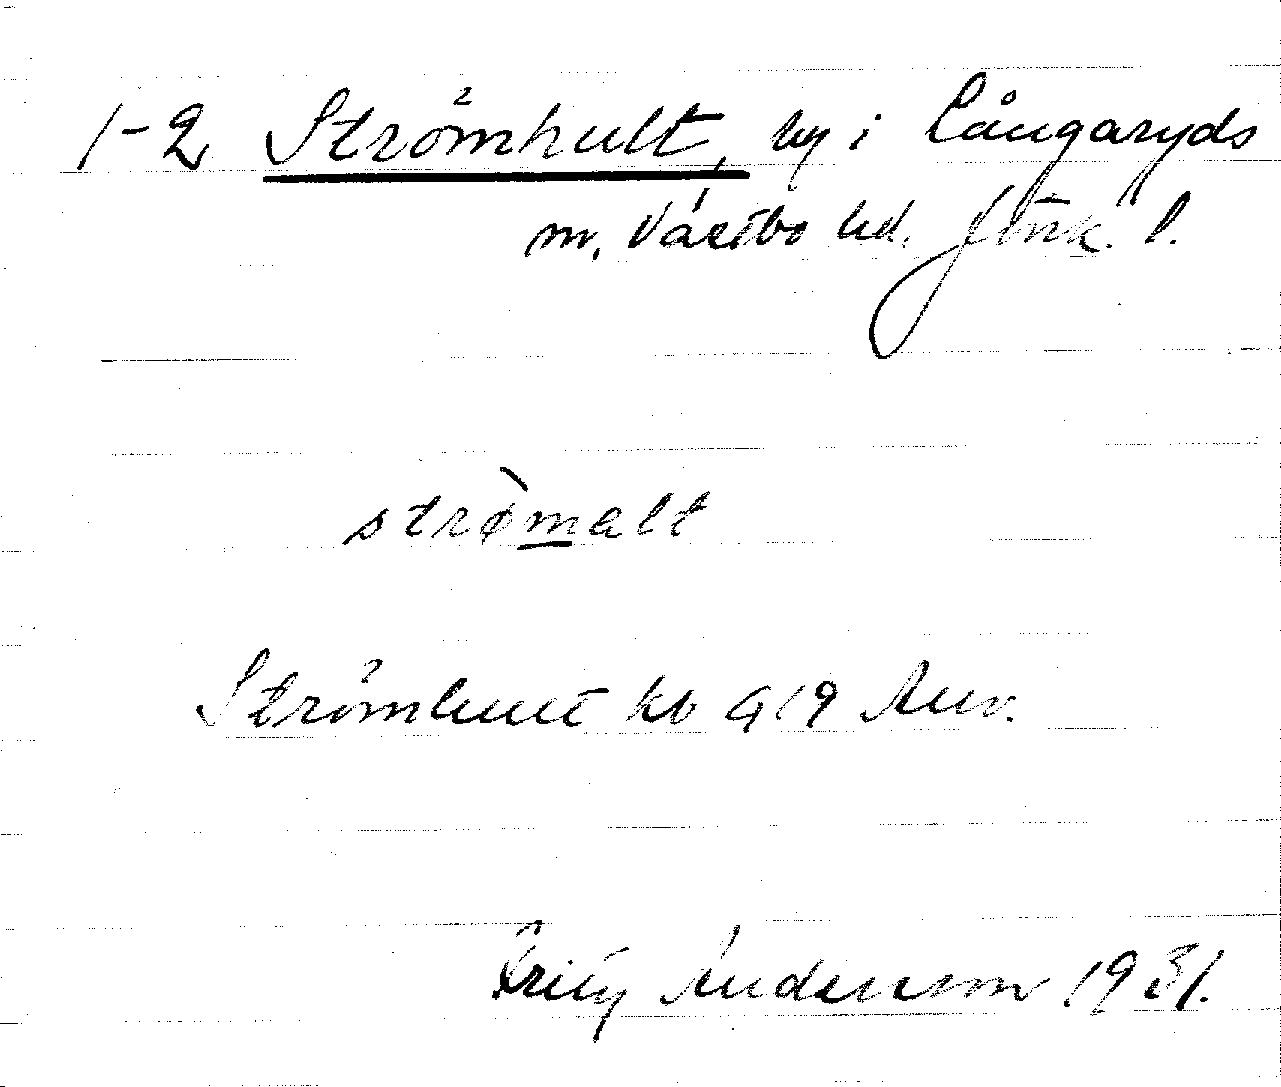 1-2 Strömhult, by i Långaryds
m. Västbo hd. Jönk. l.
strø̀malt
Strömhult kb 919 Anv.
Fritz Anderson 1931.